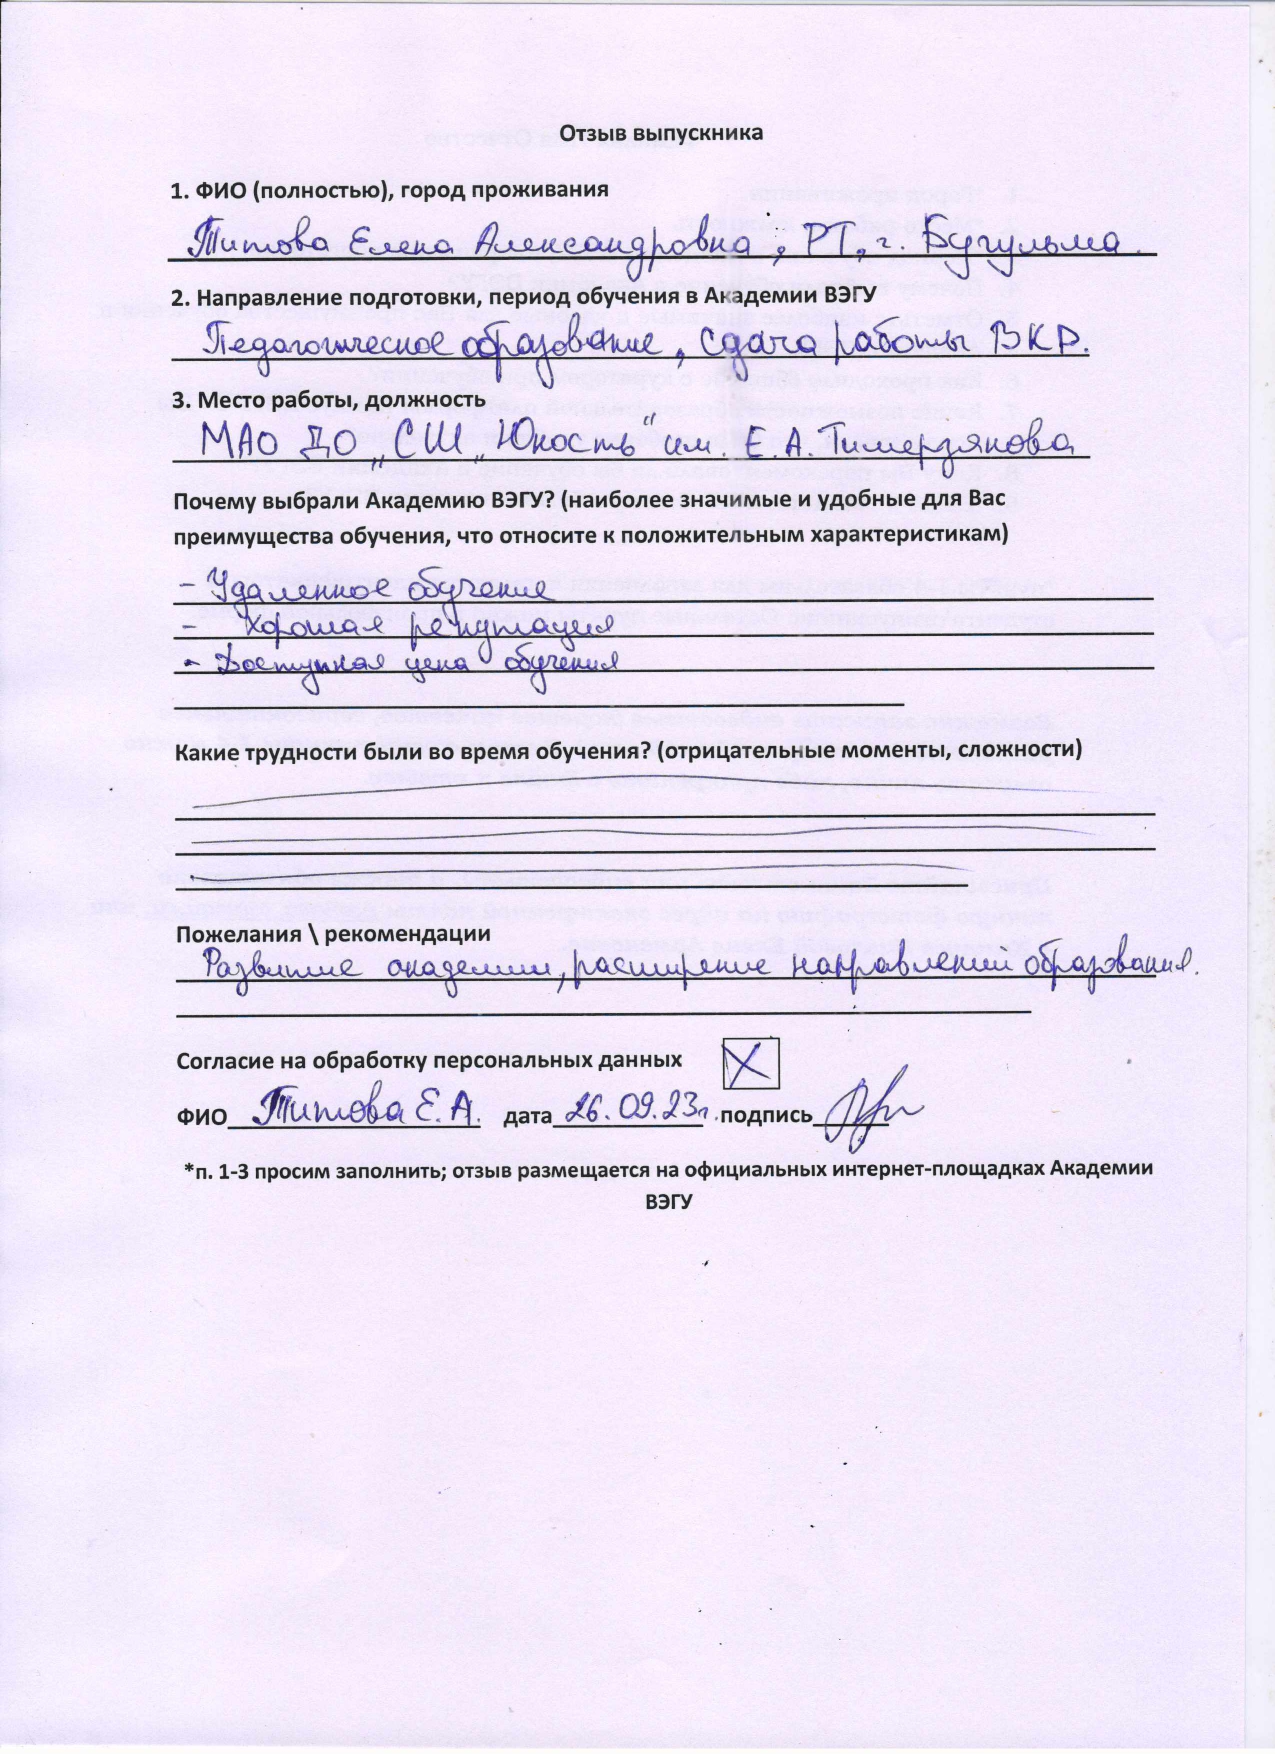 Отзыв выпускника
1. ФИО (полностью), город проживания
Титова Елена Александровна, РТ, г. Бугульма.
2. Направление подготовки, период обучения в Академии ВЭГУ
Педагогическое образование, сдача работы ВКР.
3. Место работы, должность
МАО ДО „СШ „Юность" им. Е.А. Тимерзянова
Почему выбрали Академию ВЭГУ? (наиболее значимые и удобные для Вас
преимущества обучения, что относите к положительным характеристикам)
- Удаленное обучение
- Хорошая репутация
- Доступная цена обучения
Какие трудности были во время обучения? (отрицательные моменты, сложности)
Пожелания \ рекомендации
Развитие академии, расширение направлений образования.
Согласие на обработку персональных данных
ФИО Титова Е.А. дата 26.09.23г. подпись
*п. 1-3 просим заполнить; отзыв размещается на официальных интернет-площадках Академии
ВЭГУ